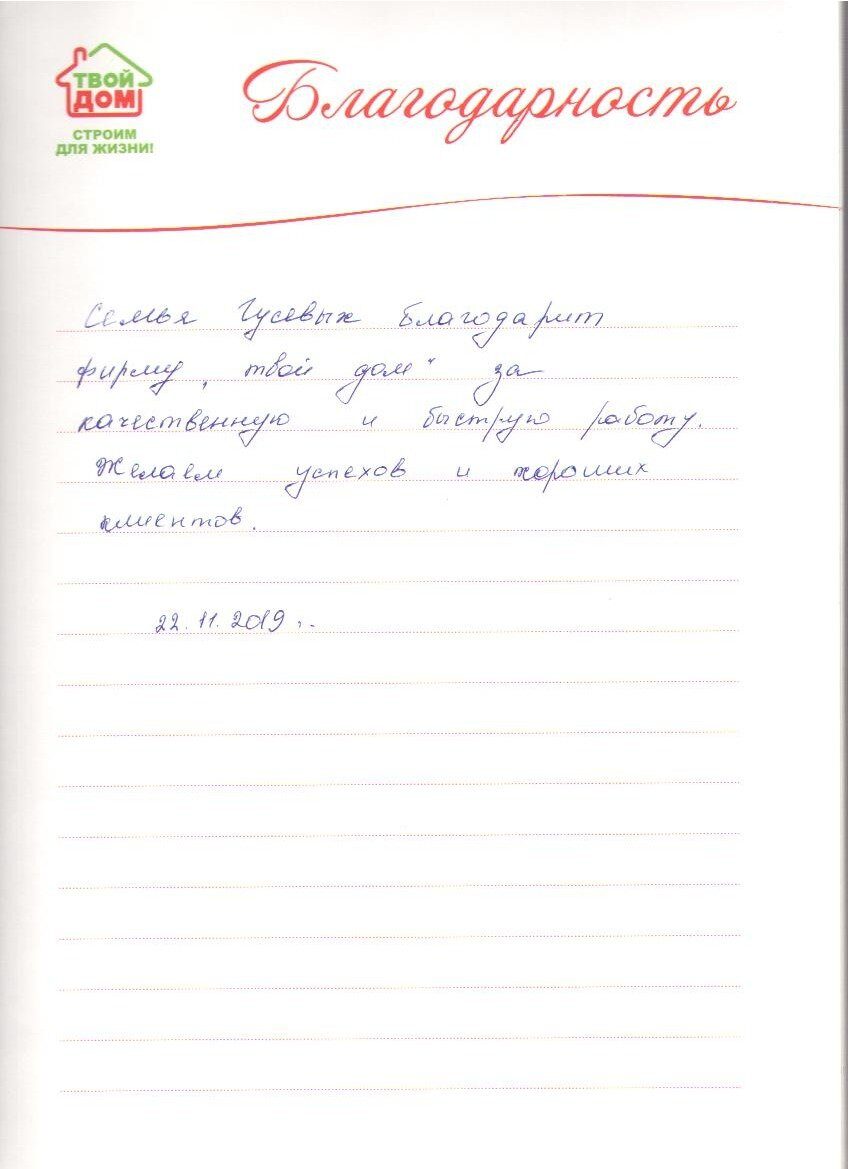 ТВОЙ
ДОМ
СТРОИМ
ДЛЯ ЖИЗНИ!
Благодарность
Семья Гусевых благодарит
фирму „твой дом“ за
качественную и быструю работу.
Желаем успехов и хороших
клиентов.
22.11.2019 г.